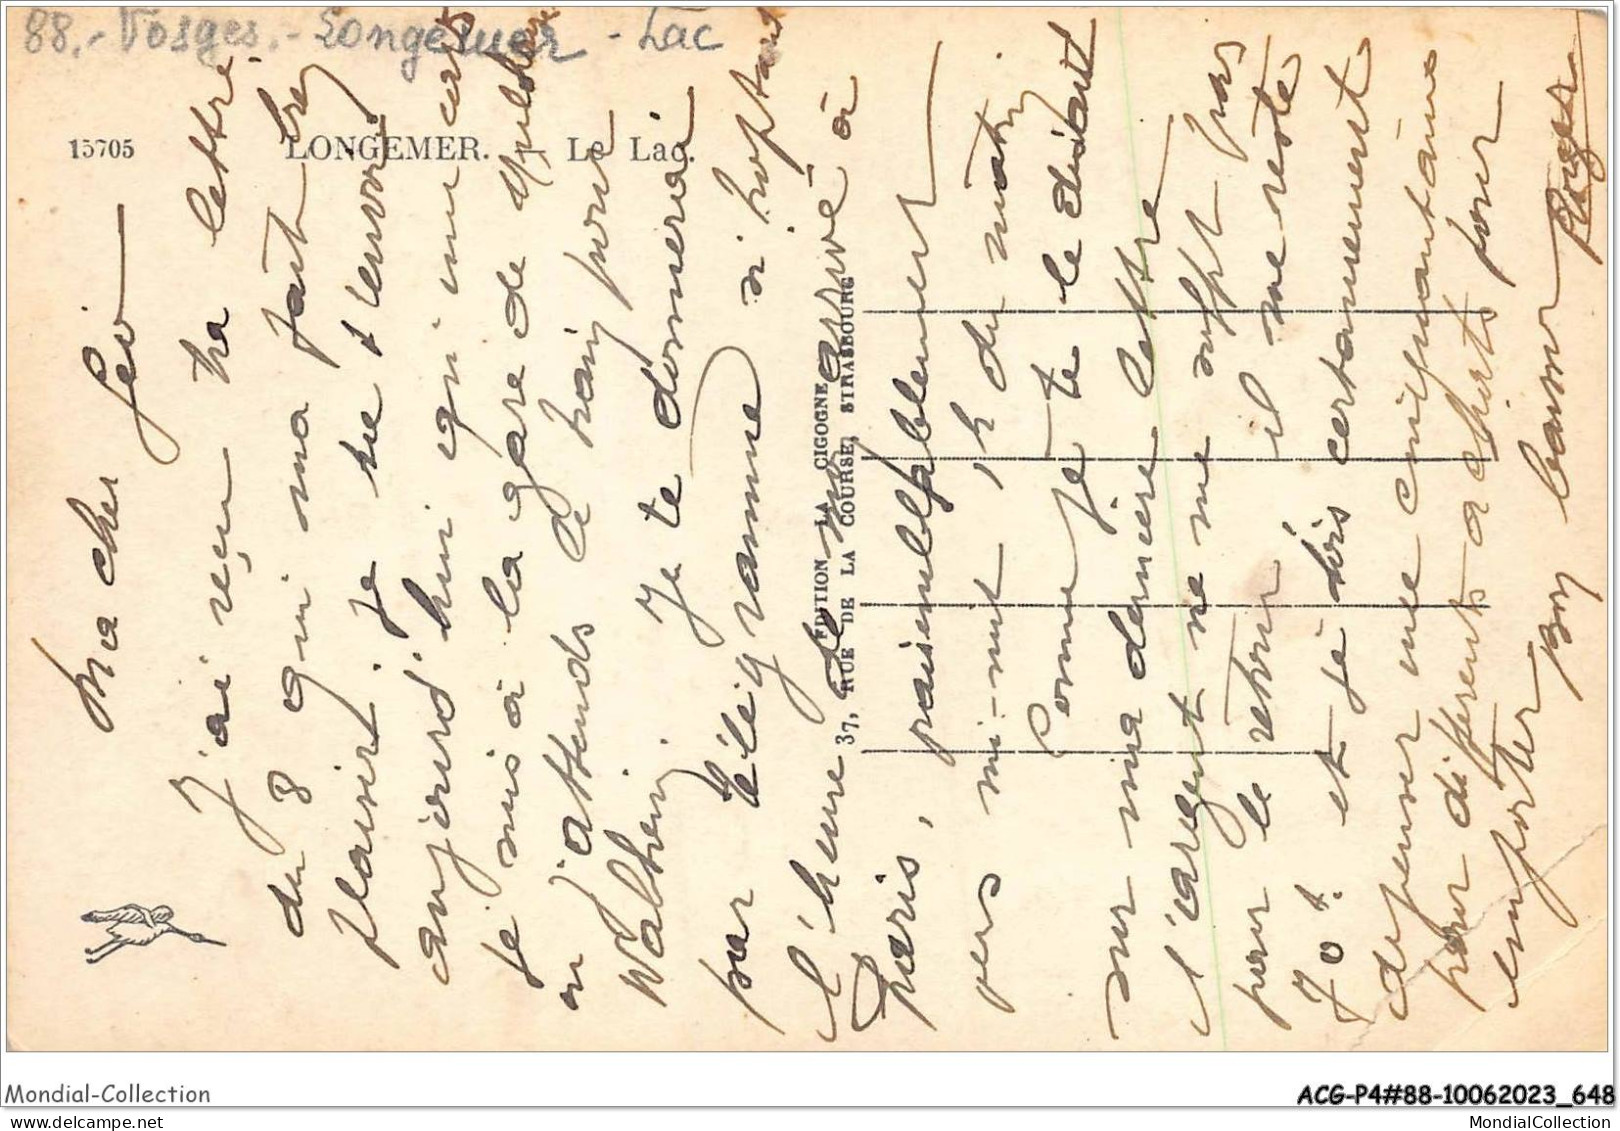 88.- Vosges.- Longemer - Lac
15705
LONGEMER. - Le Lac.
EDITION LA CIGOGNE
37, RUE DE LA COURSE, STRASBOURG
Ma cher
J'ai reçu ta lettre
du 8 qui ma fait
plaisir. Je t'envoi
aujourd'hui qui
je suis à la gare de
ou j'attends le train pour
Je te donnerai
par télégramme
l'heure de mon arrivé à
paris, vraisemblablement
vers mi-nuit 1h du matin
Comme je te le disait
sur ma dernière lettre
l'argent ne me suffit pas
pour le retour il me reste
70f. et je dois certainement
depenser une cinquantaine
pour différents achats pour
emporter
Bon baiser Roger
Mondial-Collection
ACG-P4#88-10062023_648
MondialCollection